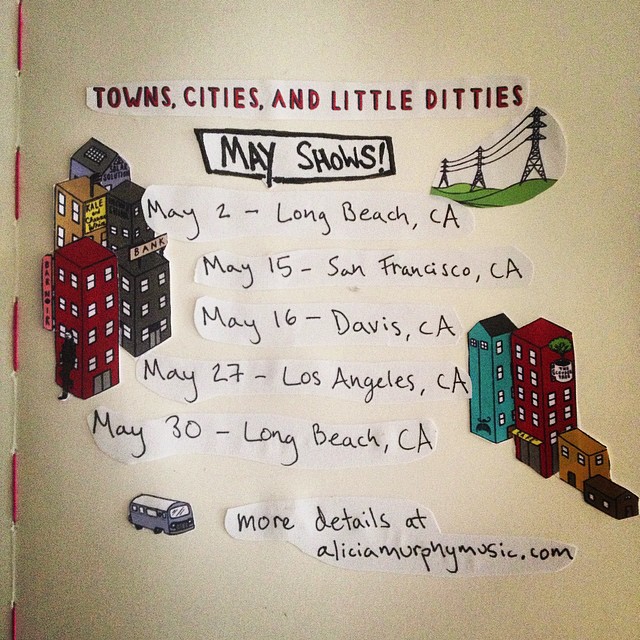 TOWNS, CITIES, AND LITTLE DITTIES
MAY SHOWS!
May 2 - Long Beach, CA
May 15 - San Francisco, CA
May 16 - Davis, CA
May 27 - Los Angeles, CA
May 30 - Long Beach, CA
more details at
aliciamurphymusic.com
KALE
and
BANK
BAR NOIR